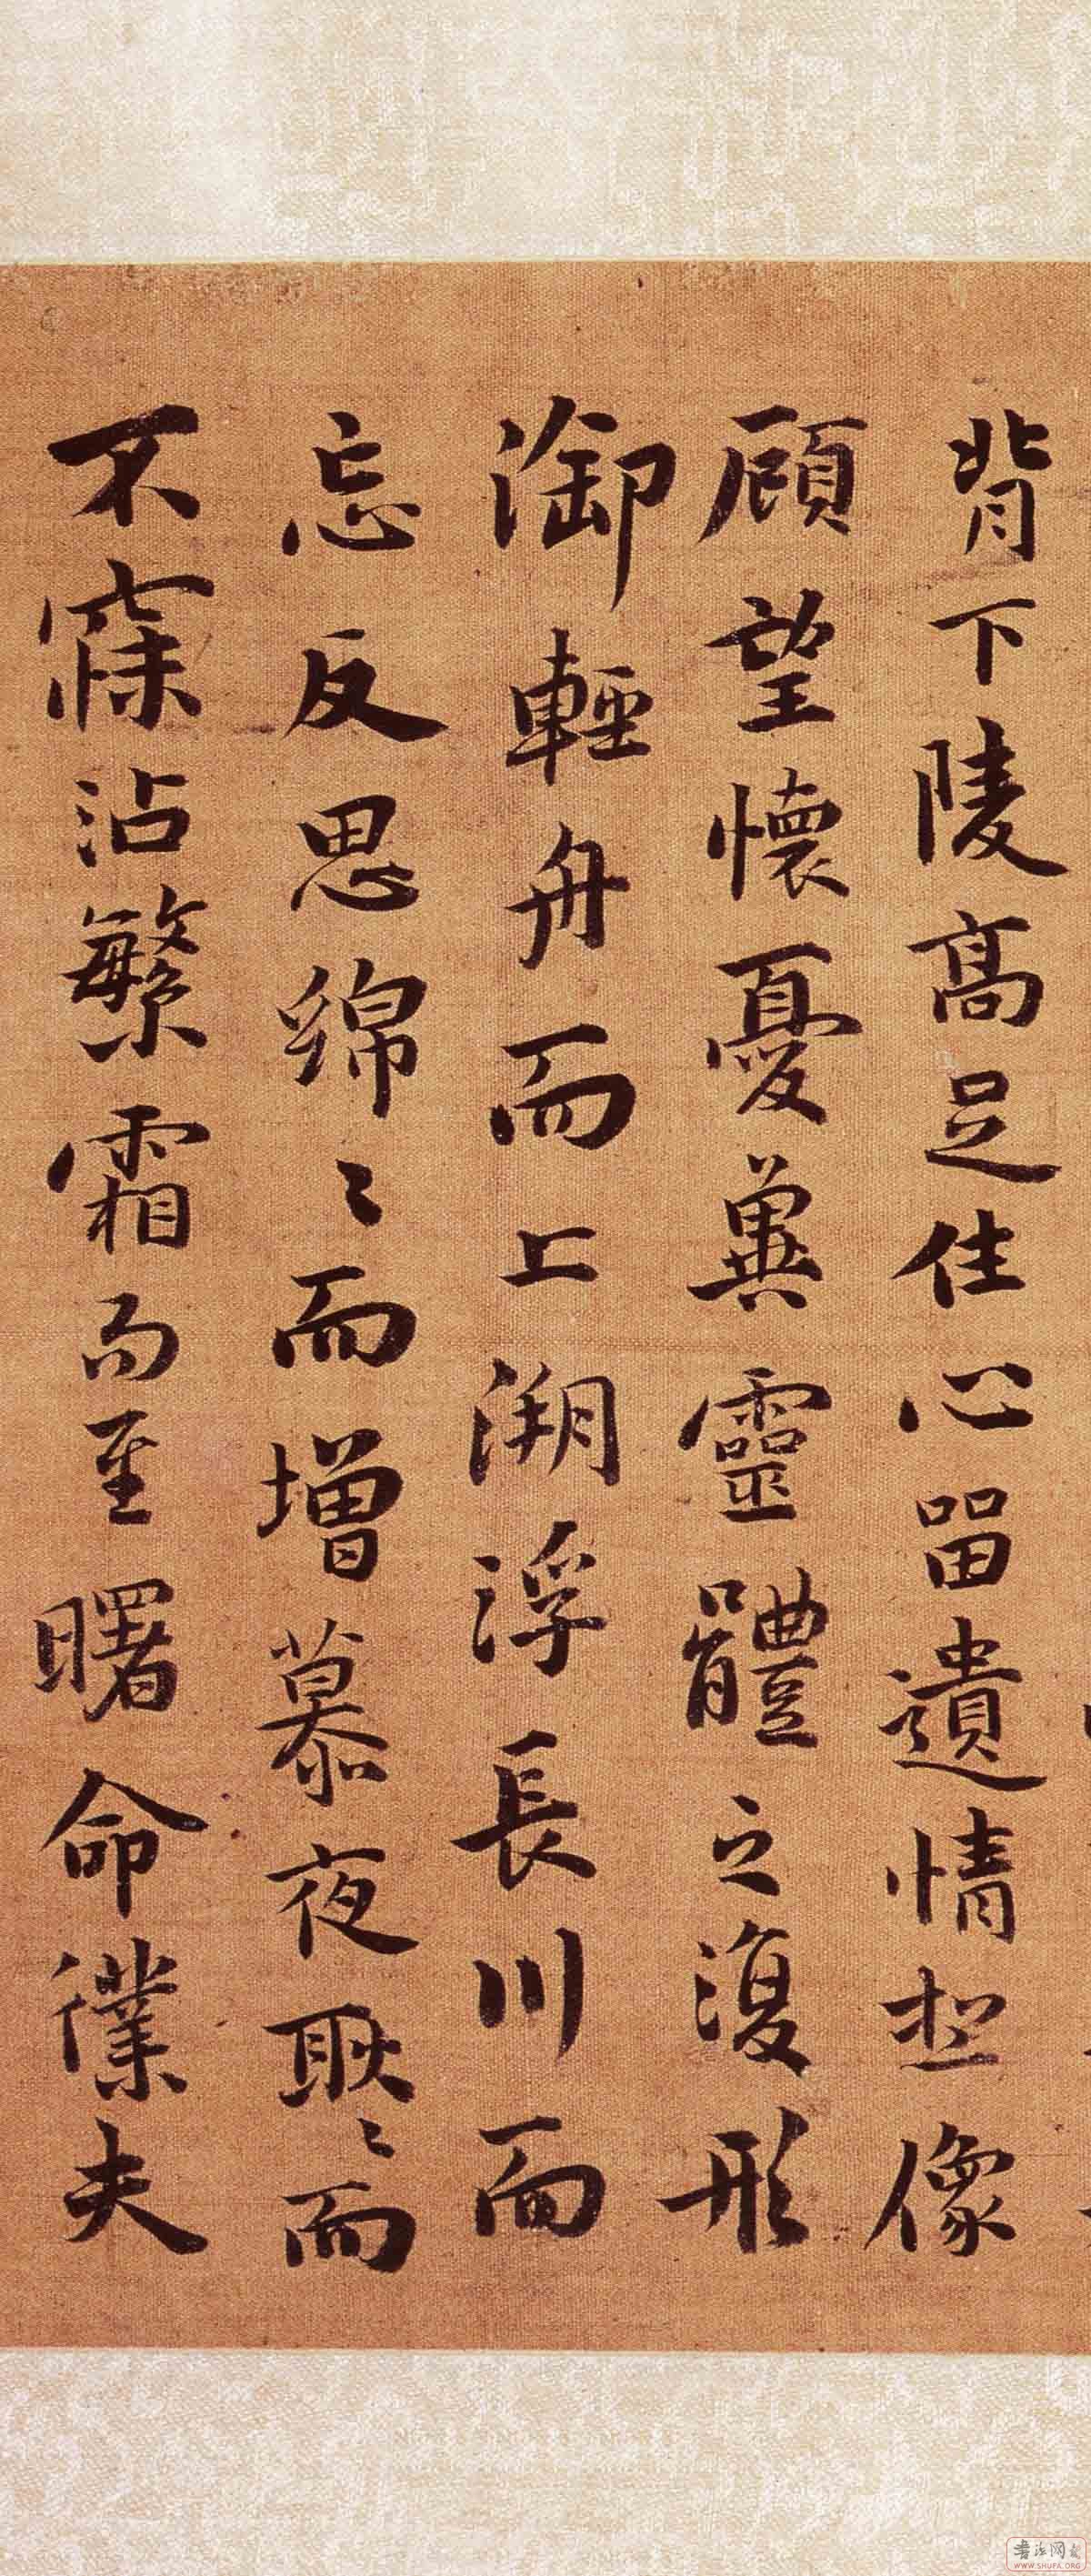 背下陵高足住心留遺情想像
顧望懷憂冀靈體之復形
御輕舟而上溯浮長川而
忘反思綿〻而增慕夜耿〻而
不寐沾繁霜而至曙命僕夫
书法网
WWW.SHUFA.ORG